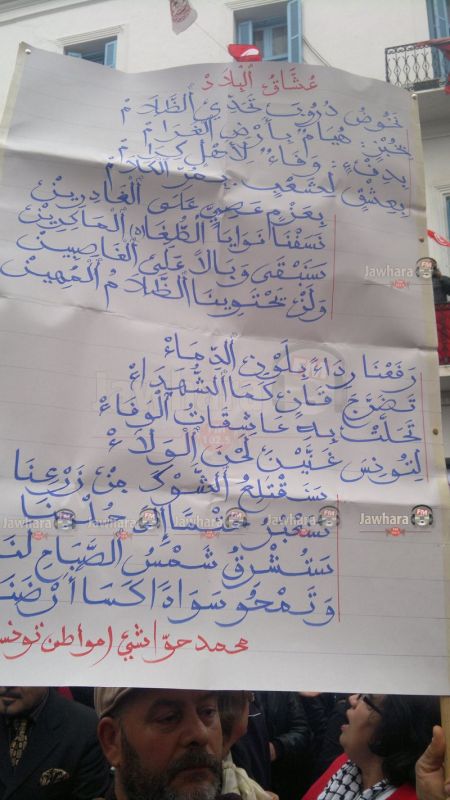 عُشَّاقُ الْبِلَادْ
نَخُوضُ دُرُوبَ تَحَدِّي الظَّلَامْ
هُيَامٌ بِأَرْضِ الْغَرَامْ
بِدِفْءِ وَفَاءٍ لِأَهْلٍ كِرَامْ
بِعِشْقٍ لِشَعْبٍ
بِعَزْمٍ عَصِيٍّ عَلَى الْغَادِرِينْ
نَسَفْنَا نَوَايَا الطُّغَاةِ الْمَاكِرِينْ
سَيَبْقَى وَبَالًا عَلَى الْغَاصِبِينْ
وَلَنْ يَحْتَوِينَا الظَّلَامُ الْمُهِينْ
رَفَعْنَا رِدَاءً بِلَوْنِ الدِّمَاءْ
تَضَرَّجَ قَانٍ كَمَا الشُّهَدَاءْ
تَحَلَّتْ بِهِ عَاشِقَاتُ الْوَفَاءْ
لِتُونِسَ غَنَّيْنَ لَحْنَ الْوَلَاءْ
سَنَقْتَلِعُ الشَّوْكَ مِنْ زَرْعِنَا
سَنَعْبُرُ إِلَى حُلْمِنَا
سَتُشْرِقُ شَمْسُ الصَّبَاحِ لَنَا
وَتَمْحُو سَوَادًا كَسَا أَرْضَنَا
محمد حواشي / مواطن تونسي
Jawhara FM
Jawhara FM
102.5
Jawhara FM
Jawhara FM
Jawhara FM